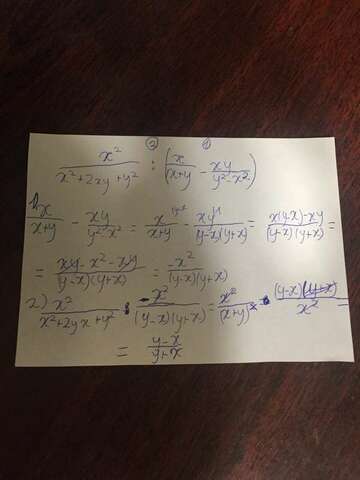 ② ①
x²/(x²+2xy+y²) : (x/(x+y) - xy/(y²-x²))
1) x/(x+y) - xy/(y²-x²) = x/(x+y) - xy/((y-x)(y+x)) = (x(y-x)-xy)/((y-x)(y+x)) =
= (xy-x²-xy)/((y-x)(y+x)) = -x²/((y-x)(y+x))
2) x²/(x²+2yx+y²) : -x²/((y-x)(y+x)) = x²/(x+y)² · (y-x)(y+x)/x² =
= (y-x)/(y+x)